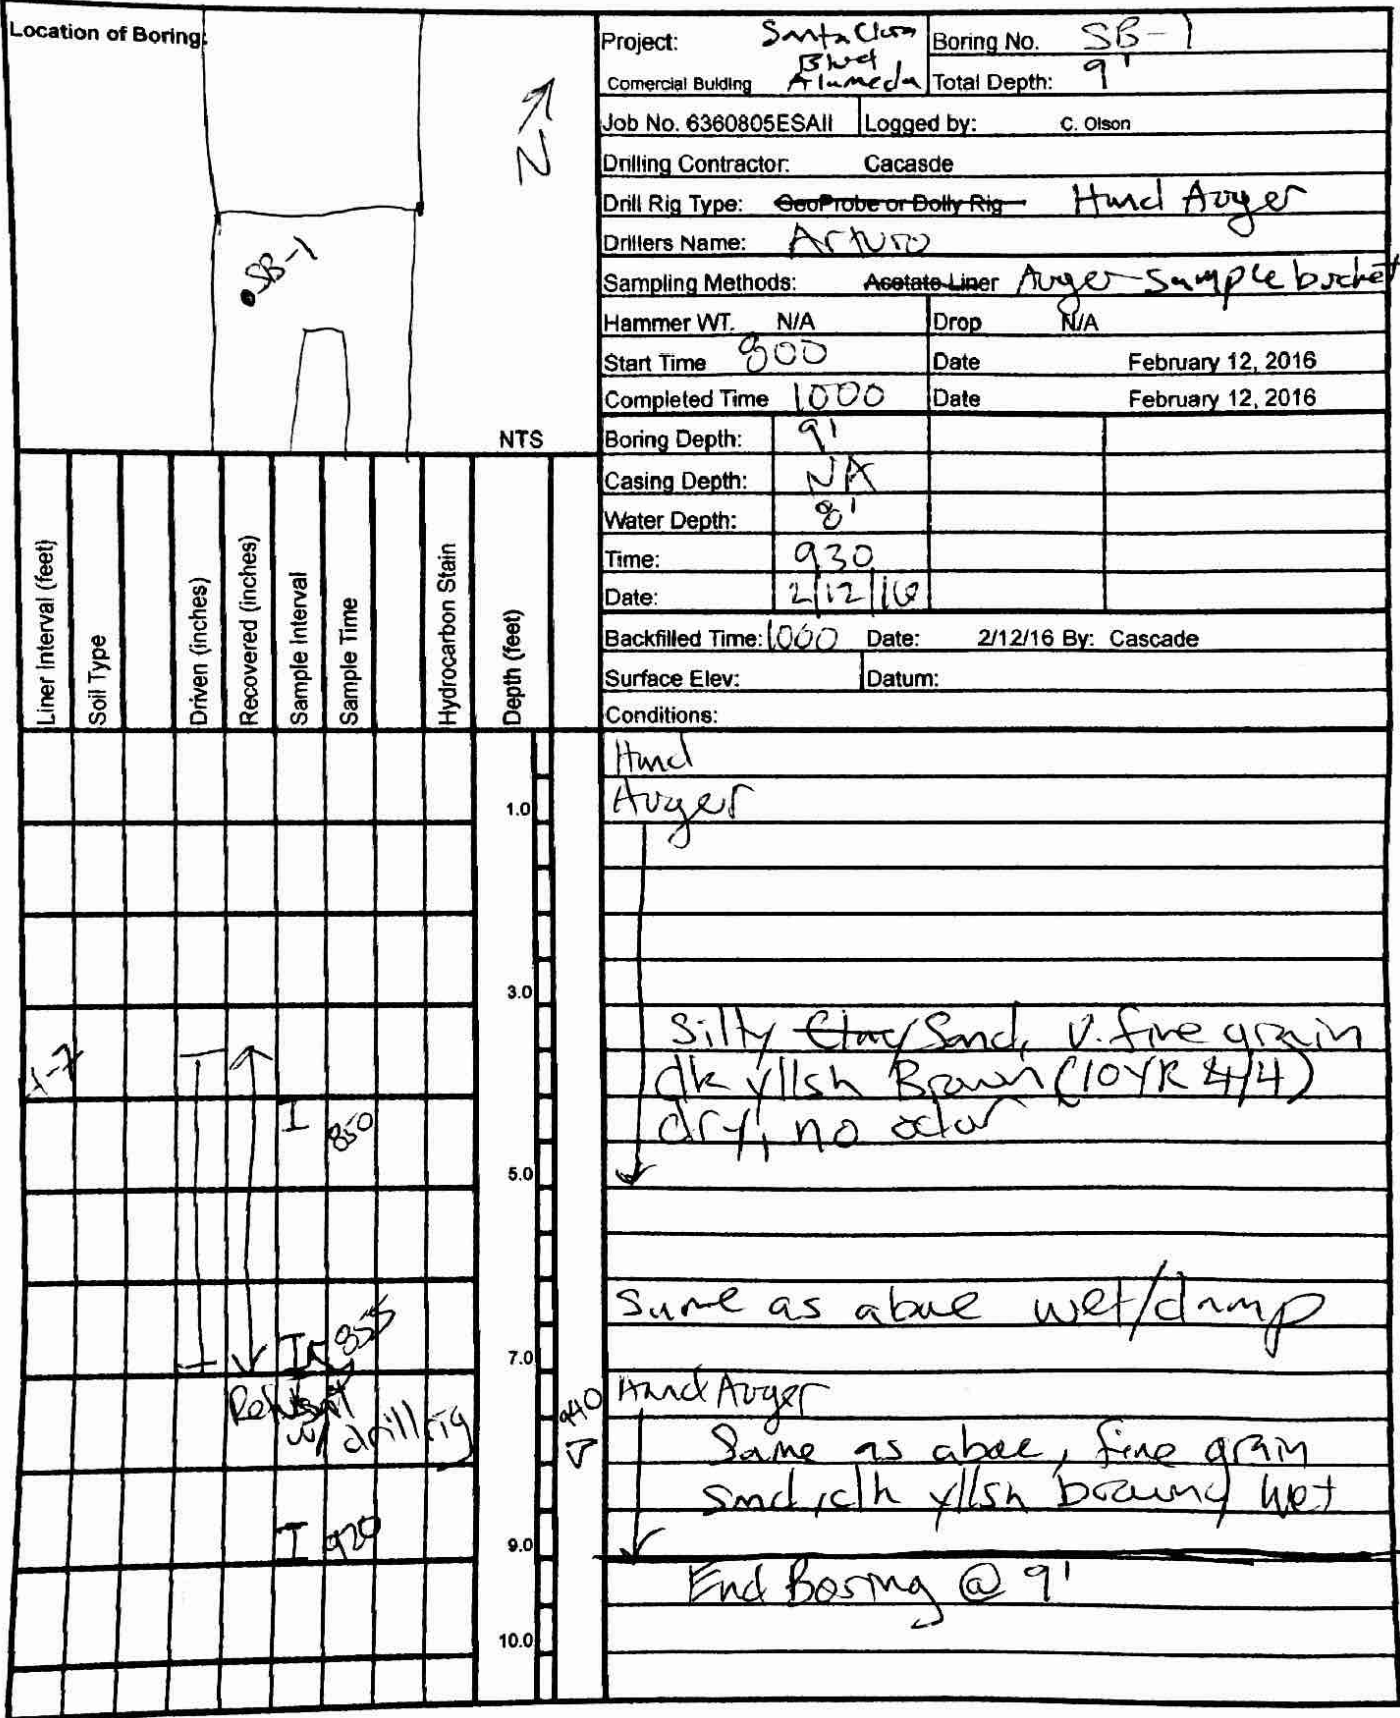 Location of Boring:
SB-1
N
NTS
Project: Santa Clara
Blvd
Comercial Bulding Alameda
Boring No. SB-1
Total Depth: 9'
Job No. 6360805ESAII Logged by: C. Olson
Drilling Contractor: Cacasde
Drill Rig Type: GeoProbe or Dolly Rig Hand Auger
Drillers Name: Arturo
Sampling Methods: Acetate Liner Auger sample bucket
Hammer WT. N/A Drop N/A
Start Time 800 Date February 12, 2016
Completed Time 1000 Date February 12, 2016
Boring Depth: 9'
Casing Depth: NA
Water Depth: 8'
Time: 930
Date: 2/12/16
Backfilled Time: 1000 Date: 2/12/16 By: Cascade
Surface Elev: Datum:
Conditions:
Liner Interval (feet)
Soil Type
Driven (inches)
Recovered (inches)
Sample Interval
Sample Time
Hydrocarbon Stain
Depth (feet)
Hand
1.0 Auger
3.0
Silty Clay Sand, V. fine grain
4-7 dk yllsh Brown (10YR 4/4)
850 dry, no odor
5.0
855 Same as above wet/damp
7.0
Refusal
w/ drill rig
940
Hand Auger
Same as above, fine grain
sand, dk yllsh brown, wet
920
9.0
End Boring @ 9'
10.0